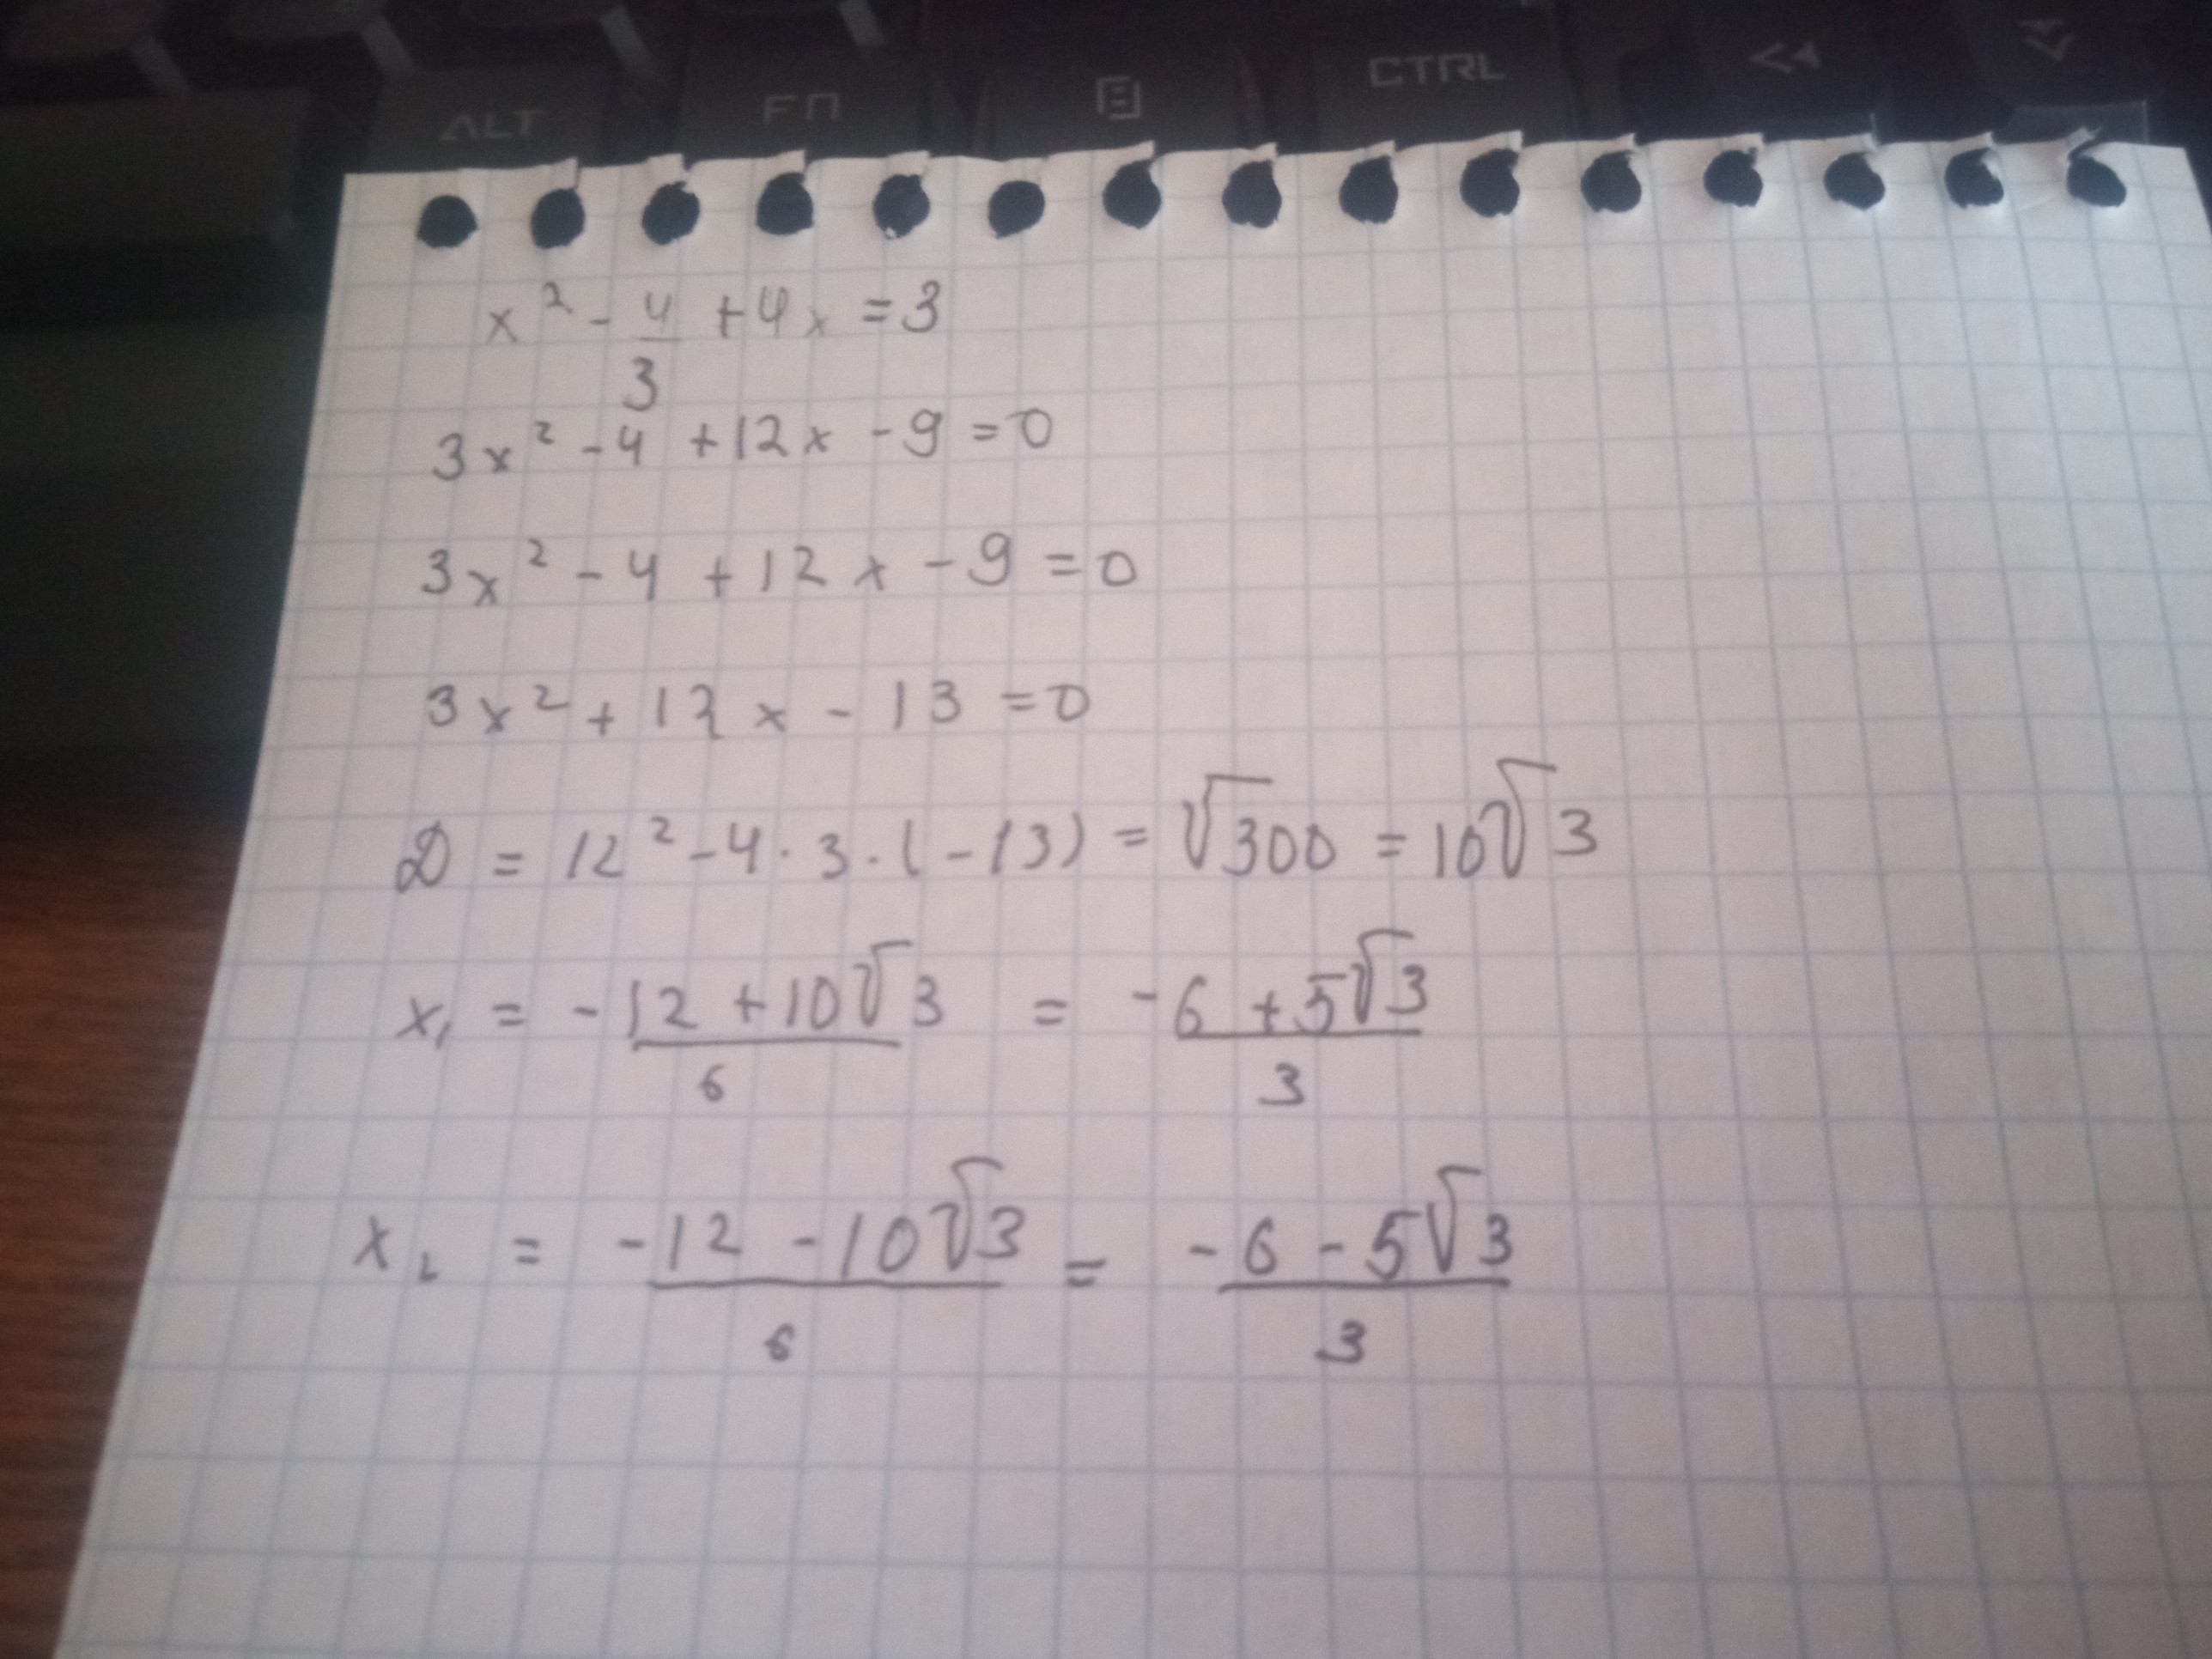 ALT FN CTRL
x² - 4/3 + 4x = 3
3x² - 4 + 12x - 9 = 0
3x² - 4 + 12x - 9 = 0
3x² + 12x - 13 = 0
D = 12² - 4 · 3 · (-13) = √300 = 10√3
x₁ = -12 + 10√3/6 = -6 + 5√3/3
x₂ = -12 - 10√3/6 = -6 - 5√3/3